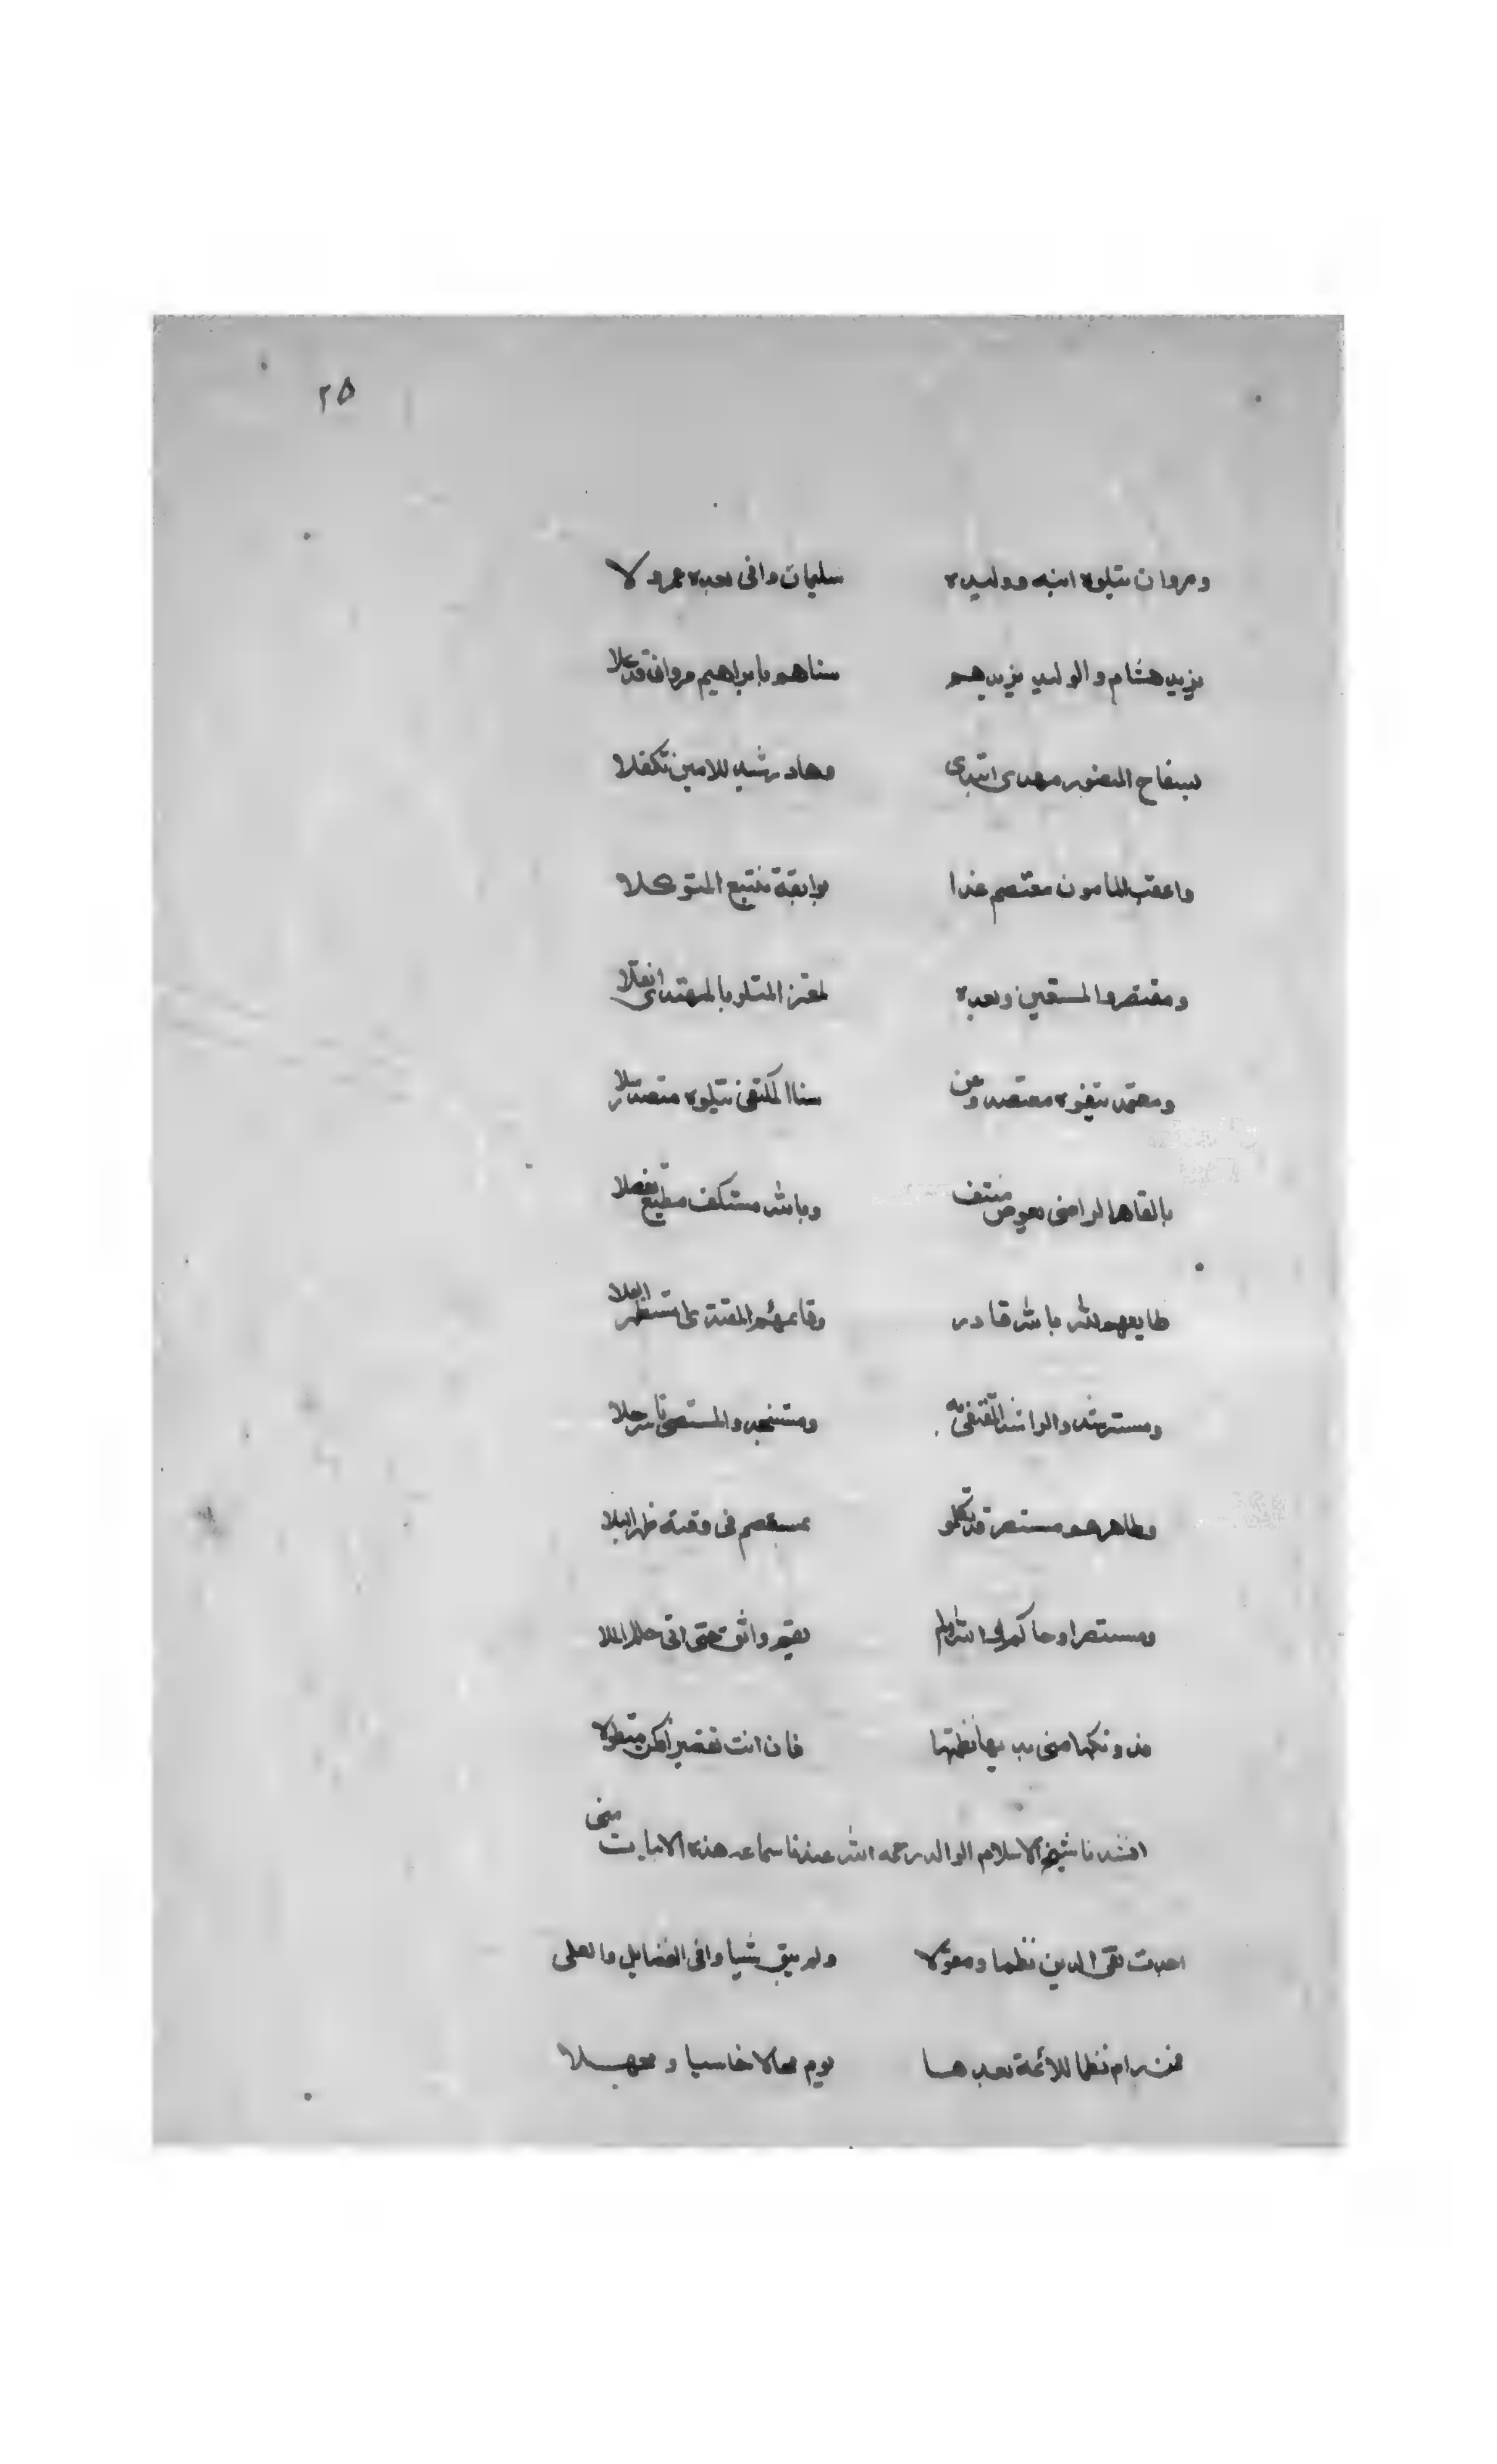 ٢٥
ومروان يتلوه ابنه ووليده سليمان وافى بعده عمر ولا
يزيد هشام والوليد يزيدهم سناهم بابراهيم مروان قد علا
بسفاح المنصور مهدى ابتدى وهاد رشيد للامين تكفلا
واعقب المامون معتصم غدا بواثقه يتبع المتوكلا
ومنتصر والمستعين وبعده لمعتز المتلو بالمهتدى انقلا
ومعتمد يقفوه معتضد وعن سنا المكتفى يتلوه مقتدر سلا
بالقاهر الراضى بعوض متقى وبالله مستكف مطيع تفضلا
طايعهم لله بالله قادر وقايمهم المقتدى مستظهر العلا
ومسترشد والراشد المقتفى به ومستنجد والمستضى ناصر حلا
وظاهرهم مستنصر قد تكملو بمستعصم فى وقته ظهر البلا
ومستنصر او حاكم الله ولم يقيم واثق حتى اتى حاكم الملا
فدونكها منى بديها نظمتها فان انت تقصير اكن متطولا
انشدنا شيخ الاسلام الوالد رحمه الله عندنا سماعه هذه الابيات منى
اجدت تقى الدين نظما ومقولا ولم يبق شيا وافى الفضايل والعلى
فمن رام نظما للائمة بعدها يروم محالا خاسيا ومجهلا